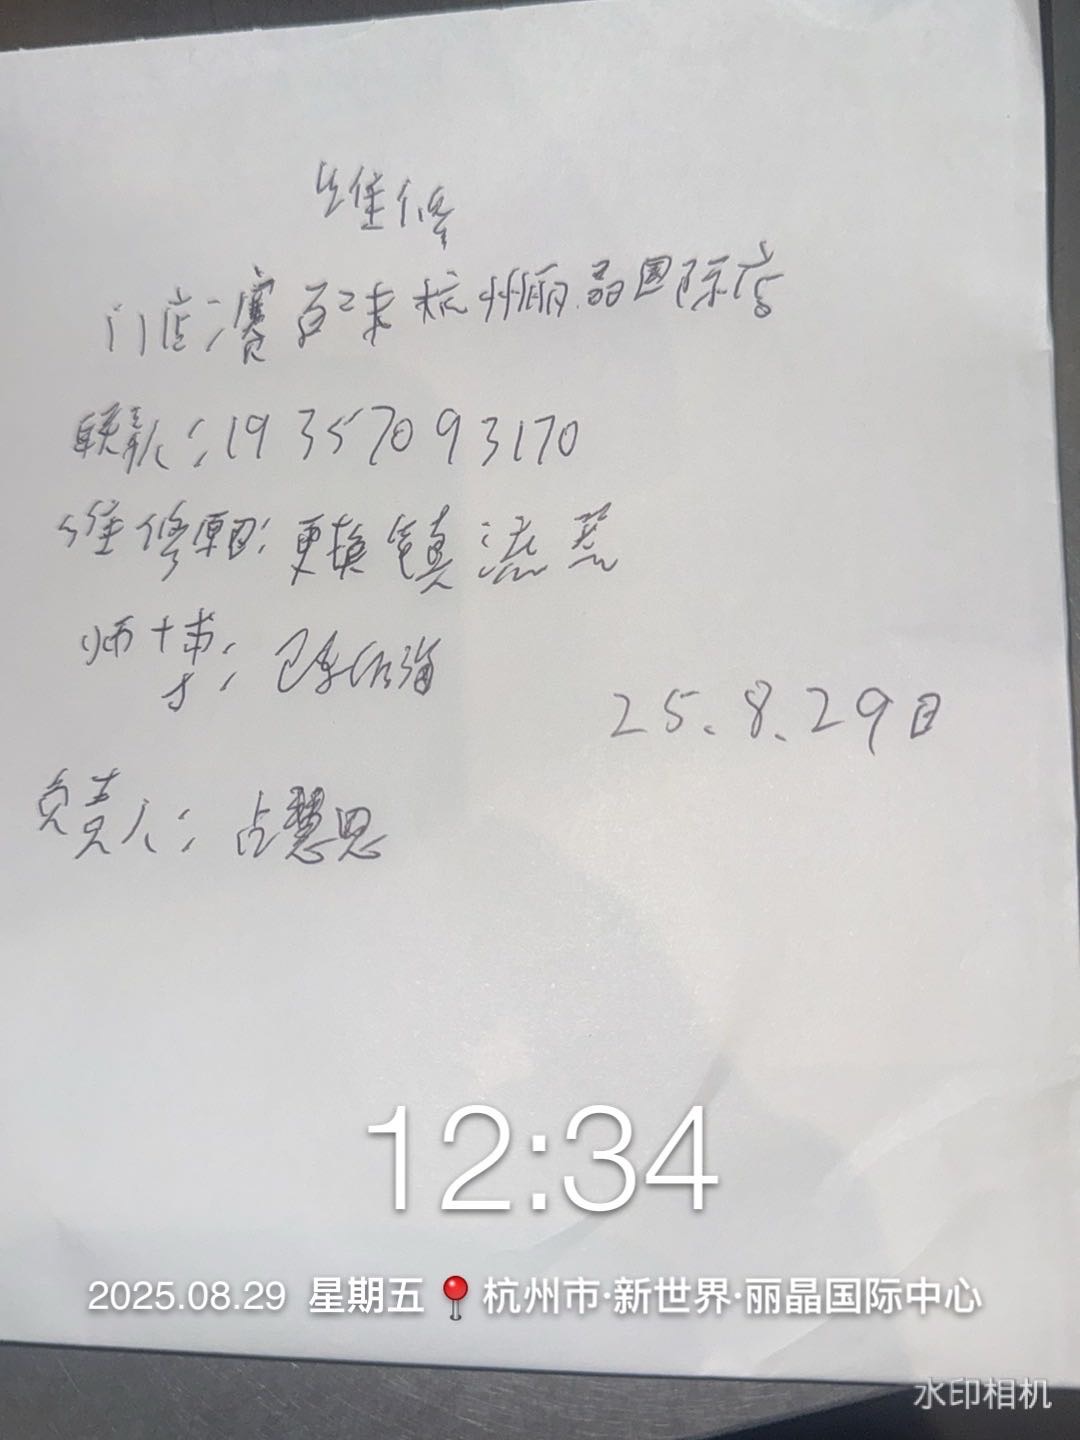 维修
门店：赛百味杭州丽晶国际店
联系人：19357093170
维修项目：更换镇流器
师傅：陈
25.8.29日
负责人：占慧思
12:34
2025.08.29 星期五 杭州市·新世界·丽晶国际中心
水印相机